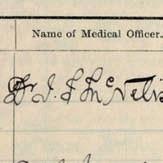 Name of Medical Officer.
Dr J. F. McNelis